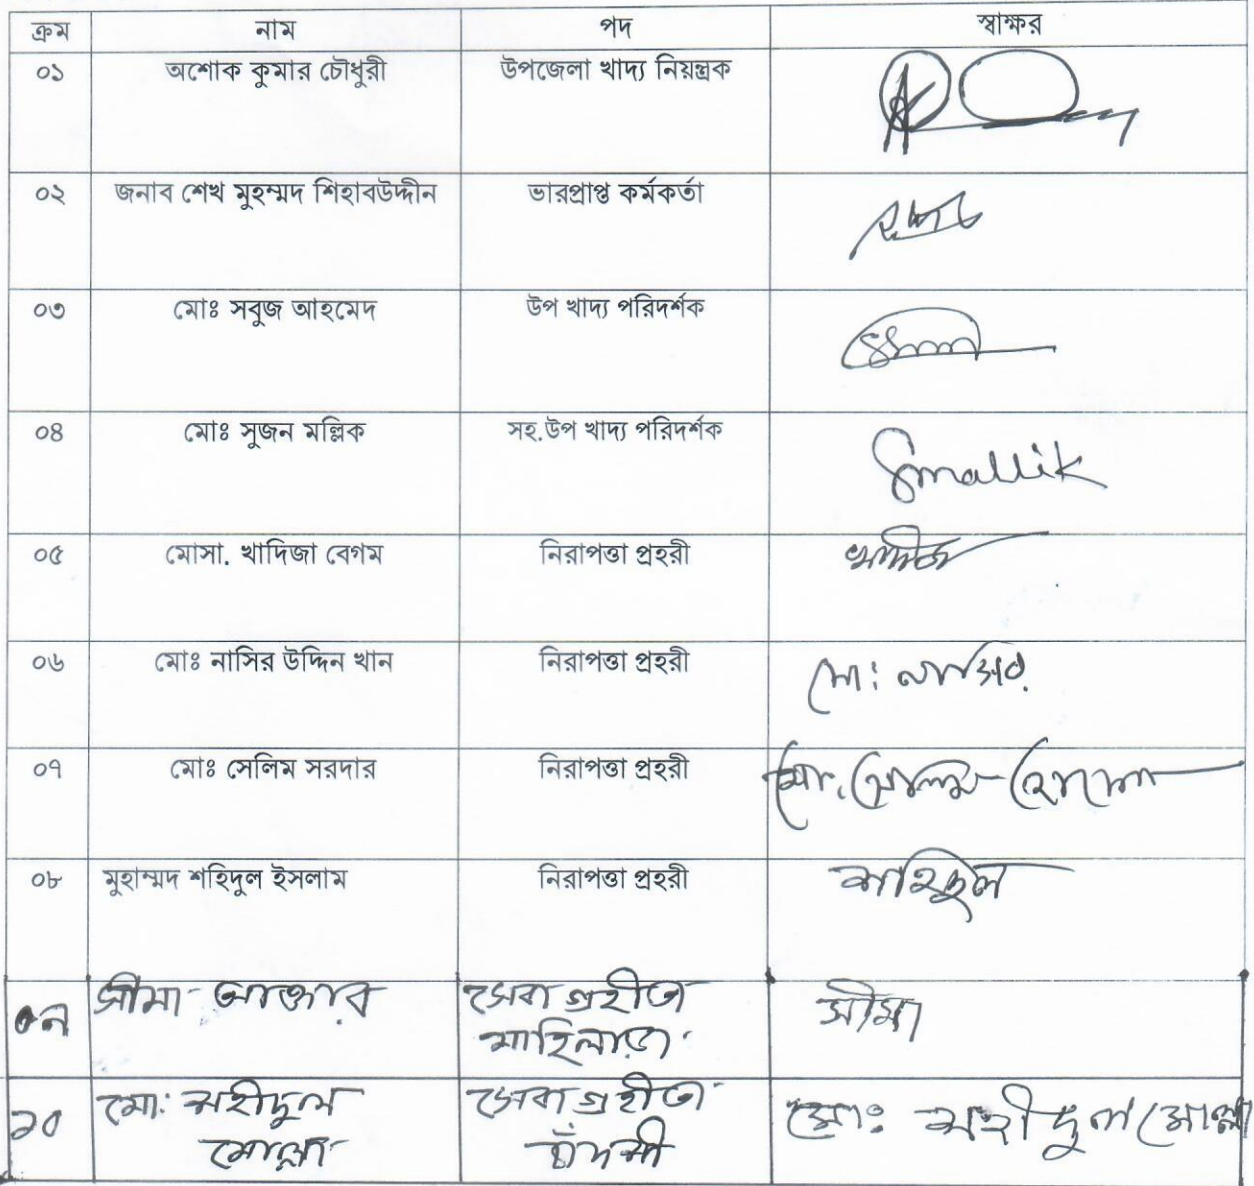 ক্রম নাম পদ স্বাক্ষর
০১ অশোক কুমার চৌধুরী উপজেলা খাদ্য নিয়ন্ত্রক
০২ জনাব শেখ মুহম্মদ শিহাবউদ্দীন ভারপ্রাপ্ত কর্মকর্তা
০৩ মোঃ সবুজ আহমেদ উপ খাদ্য পরিদর্শক
০৪ মোঃ সুজন মল্লিক সহ.উপ খাদ্য পরিদর্শক Smallik
০৫ মোসা. খাদিজা বেগম নিরাপত্তা প্রহরী
০৬ মোঃ নাসির উদ্দিন খান নিরাপত্তা প্রহরী মো: নাসির
০৭ মোঃ সেলিম সরদার নিরাপত্তা প্রহরী মো. সেলিম
০৮ মুহাম্মদ শহিদুল ইসলাম নিরাপত্তা প্রহরী শহিদুল
০৯ সীমা আক্তার সেবা গ্রহীতা সীমা
মাহিলাড়া
১০ মো: শহীদুল সেবা গ্রহীতা মোঃ শহীদুল মোল্লা
মোল্লা চাঁদশী